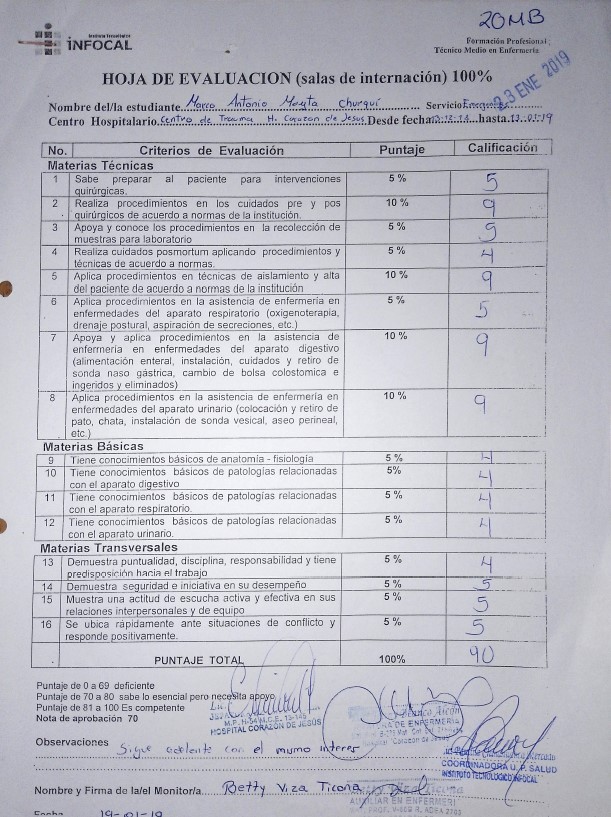 20MB
INFOCAL
Formación Profesional
Técnico Medio en Enfermería
23 ENE 2019
HOJA DE EVALUACION (salas de internación) 100%
Nombre del/la estudiante Marco Antonio Mayta Churqui Servicio
Centro Hospitalario Centro de Trauma H. Corazon de Jesus Desde fecha hasta
No. Criterios de Evaluación Puntaje Calificación
Materias Técnicas
1 Sabe preparar al paciente para intervenciones 5 % 5
quirúrgicas.
2 Realiza procedimientos en los cuidados pre y pos 10 % 9
quirúrgicos de acuerdo a normas de la institución.
3 Apoya y conoce los procedimientos en la recolección de 5 % 5
muestras para laboratorio
4 Realiza cuidados posmortum aplicando procedimientos y 5 % 4
técnicas de acuerdo a normas.
5 Aplica procedimientos en técnicas de aislamiento y alta 10 % 9
del paciente de acuerdo a normas de la institución
6 Aplica procedimientos en la asistencia de enfermería en 5 % 5
enfermedades del aparato respiratorio (oxigenoterapia,
drenaje postural, aspiración de secreciones, etc.)
7 Apoya y aplica procedimientos en la asistencia de 10 % 9
enfermería en enfermedades del aparato digestivo
(alimentación enteral, instalación, cuidados y retiro de
sonda naso gástrica, cambio de bolsa colostomica e
ingeridos y eliminados)
8 Aplica procedimientos en la asistencia de enfermería en 10 % 9
enfermedades del aparato urinario (colocación y retiro de
pato, chata, instalación de sonda vesical, aseo perineal,
etc.)
Materias Básicas
9 Tiene conocimientos básicos de anatomía - fisiología 5 % 4
10 Tiene conocimientos básicos de patologías relacionadas 5% 4
con el aparato digestivo
11 Tiene conocimientos básicos de patologías relacionadas 5 % 4
con el aparato respiratorio.
12 Tiene conocimientos básicos de patologías relacionadas 5 % 4
con el aparato urinario.
Materias Transversales
13 Demuestra puntualidad, disciplina, responsabilidad y tiene 5 % 4
predisposición hacia el trabajo
14 Demuestra seguridad e iniciativa en su desempeño 5 % 5
15 Muestra una actitud de escucha activa y efectiva en sus 5 % 5
relaciones interpersonales y de equipo
16 Se ubica rápidamente ante situaciones de conflicto y 5 % 5
responde positivamente.
PUNTAJE TOTAL 100% 90
Puntaje de 0 a 69 deficiente
Puntaje de 70 a 80 sabe lo esencial pero necesita apoyo
Puntaje de 81 a 100 Es competente
Nota de aprobación 70
HOSPITAL CORAZÓN DE JESÚS
DE ENFERMERIA
Observaciones Sigue adelante con el mismo interes
COORDINADORA U.P. SALUD
INSTITUTO TECNOLOGICO INFOCAL
Nombre y Firma de la/el Monitor/a Betty Viza Ticona
AUXILIAR EN ENFERMERI
Fecha 19-01-19